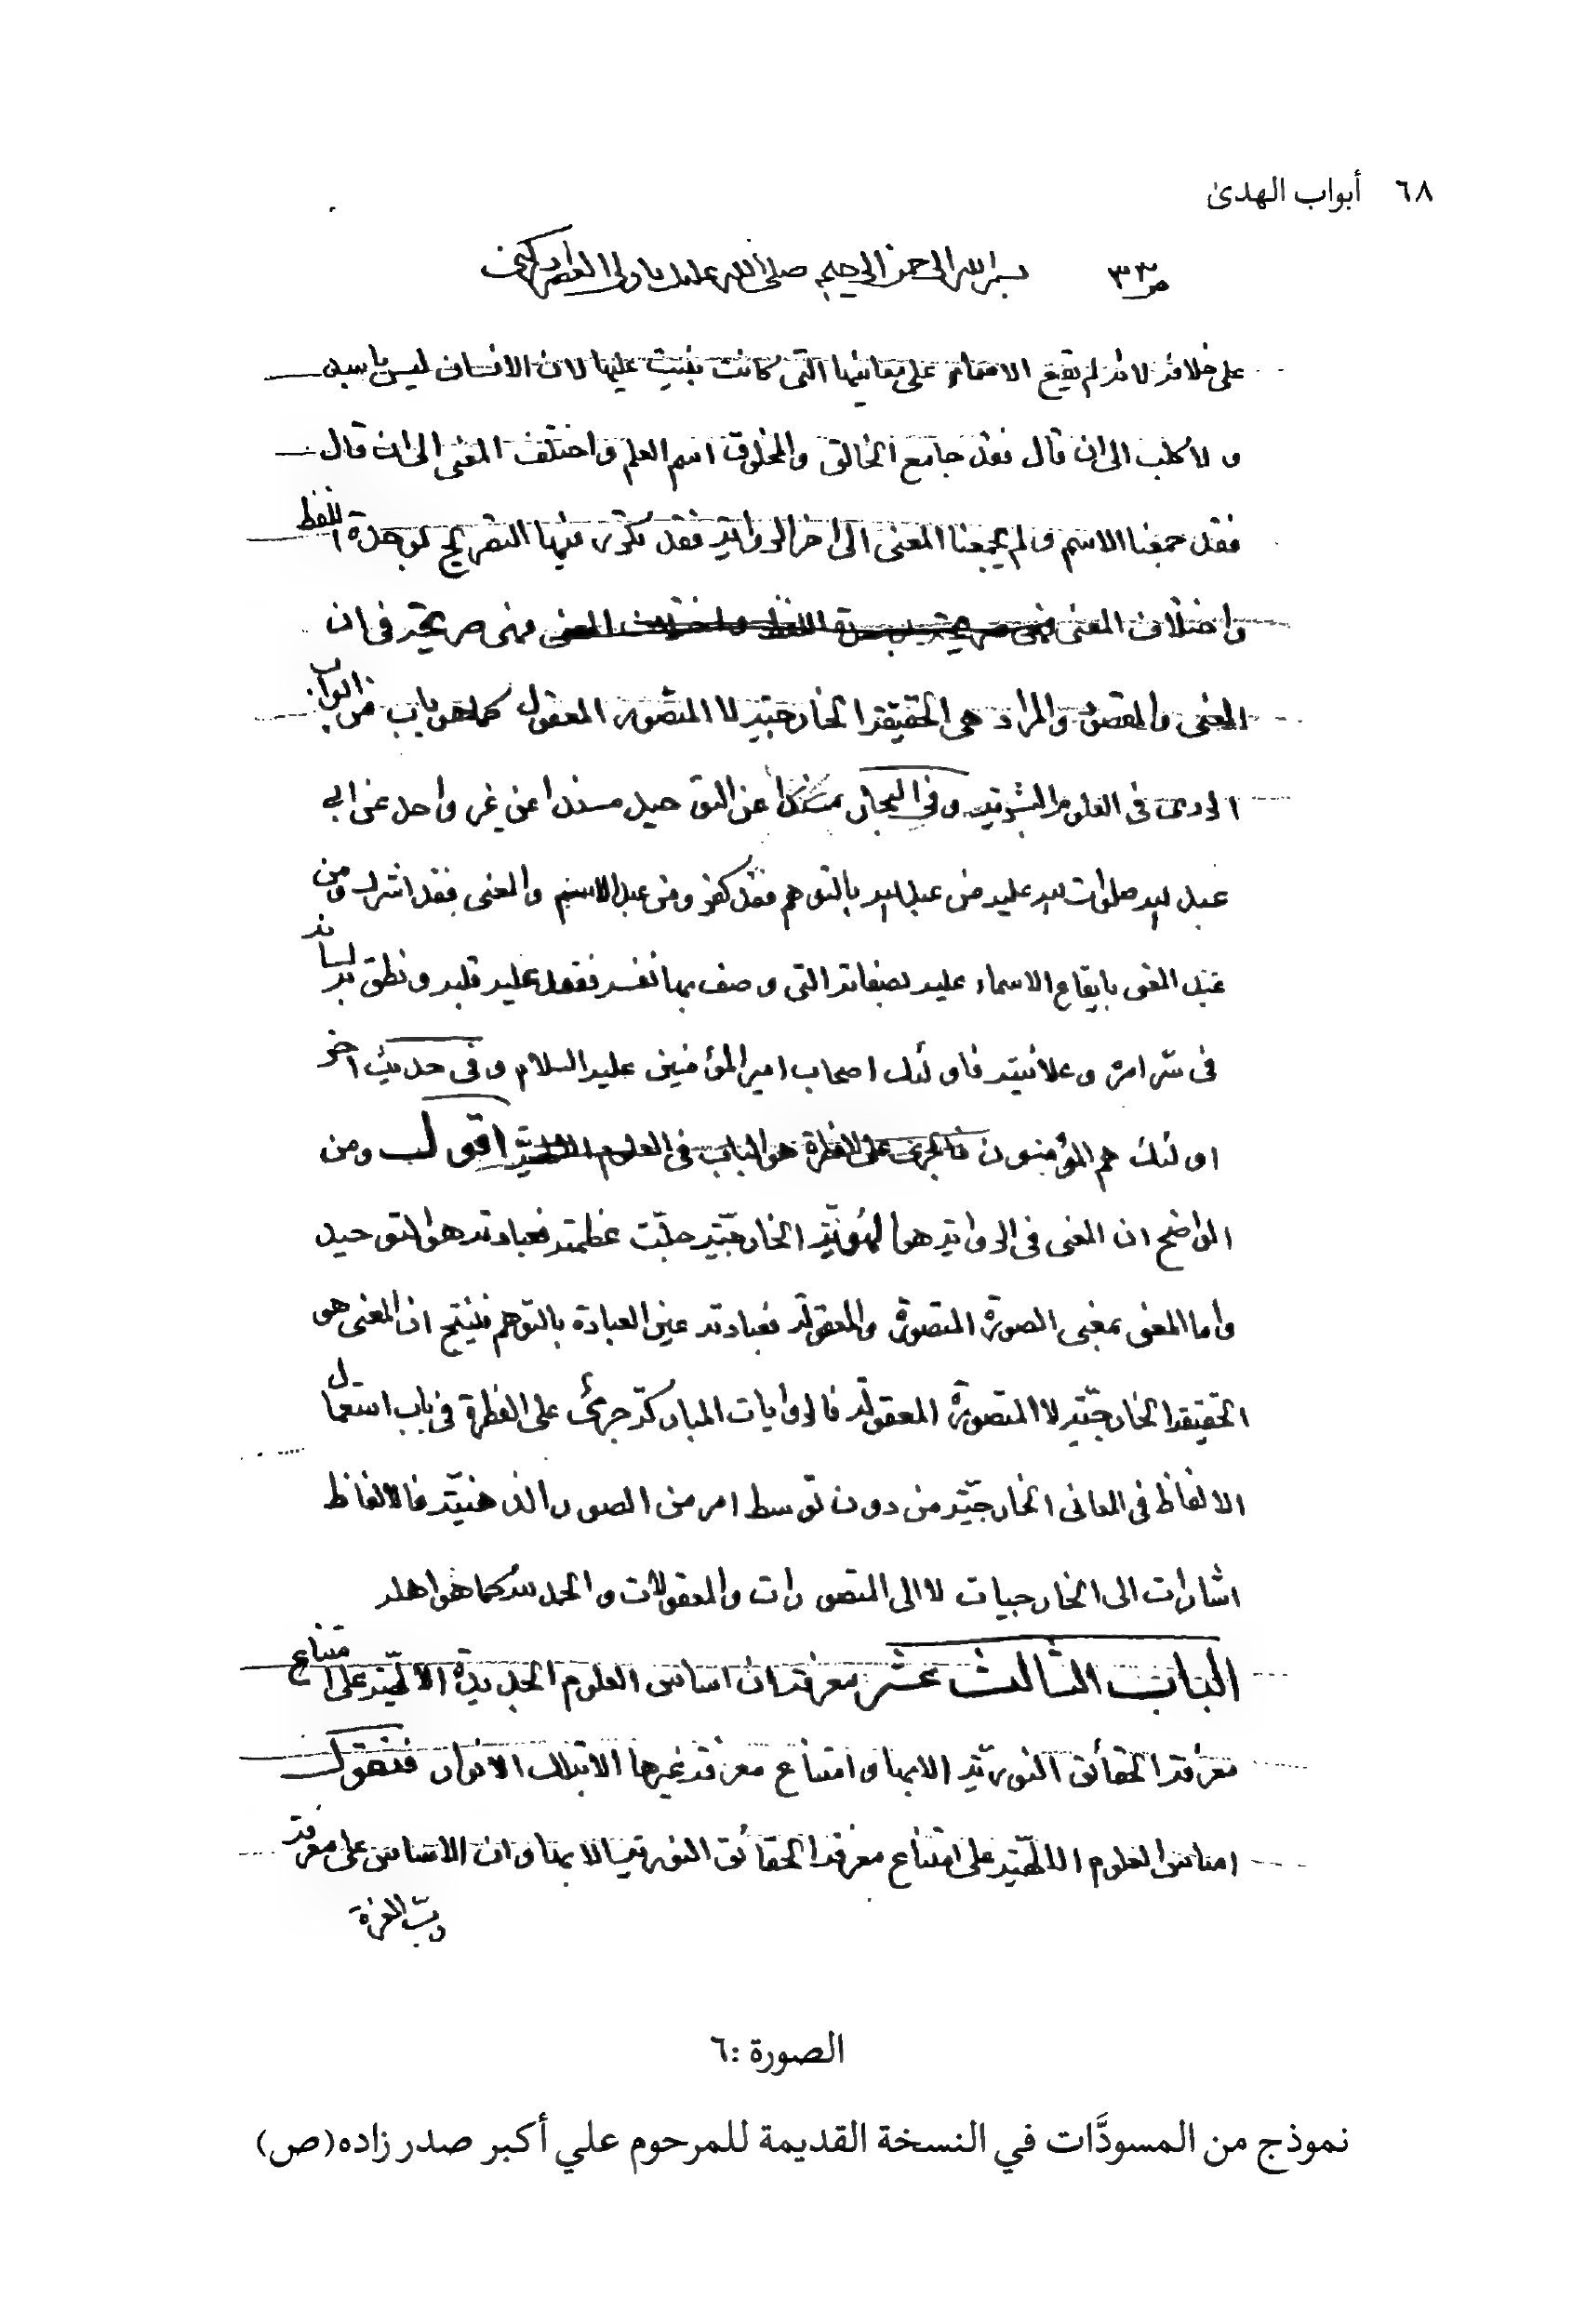 ٦٨ أبواب الهدىٰ
ص ٣٣ بسم الله الرحمن الرحيم صلى الله عليك يا ولى العصر ادركني
على خلافه لانه لم يقع الاسماء على معانيها التى كانت بنيت عليها لان الانسان ليس باسد
و لا كلب الى ان قال فقد جامع الخالق والمخلوق اسم العلم واختلف المعنى الى ان قال
فقد جمعنا الاسم ولم يجمعنا المعنى الى اخر الرواية فقد تكرر فيها التصريح لوحدة اللفظ
واختلاف المعنى فهى صريحة فى ان
المعنى والمقصود والمراد هى الحقيقة الخارجية لا المتصور المعقول كما هو باب من ابواب
الردى فى العلوم البشرية وفى البحار مسندا عن التوحيد مسندا عن غير واحد عن ابى
عبد الله صلوات الله عليه من عبد الله بالتوهم فقد كفر ومن عبد الاسم والمعنى فقد اشرك ومن
عبد المعنى بايقاع الاسماء عليه بصفاته التى وصف بها نفسه فعقد عليه قلبه ونطق به لسانه
فى سر امره وعلانيته فاولئك اصحاب امير المؤمنين عليه السلام وفى حديث اخر
اولئك هم المؤمنون فالجرى على الفطرة هو الباب فى العلوم الالهية اقول ومن
الواضح ان المعنى فى الرواية هو الهوية الخارجية جلّت عظمته فعبادته هو التوحيد
واما المعنى بمعنى الصورة المتصورة والمعقولة فعبادته عين العبادة بالتوهم فينتج ان المعنى هو
الحقيقة الخارجية لا المتصورة المعقولة فالروايات المباركة جرئ على الفطرة فى باب استعمال
الالفاظ فى المعانى الخارجية من دون توسط امر من الصور الذهنية فالالفاظ
اشارات الى الخارجيات لا الى المتصورات والمعقولات والحمد لله كما هو اهله
الباب الثالث عشر معرفة ان اساس العلوم الجديدة الالهية على امتناع
معرفة الحقائق النورية الا بها وامتناع معرفة غيرها الا بتلك الانوار فنقول
اساس العلوم الالهية على امتناع معرفة الحقائق النورية الا بها وان الاساس على معرفة
رب العزة
الصورة :٦
نموذج من المسودَّات في النسخة القديمة للمرحوم علي أكبر صدر زاده(ص)